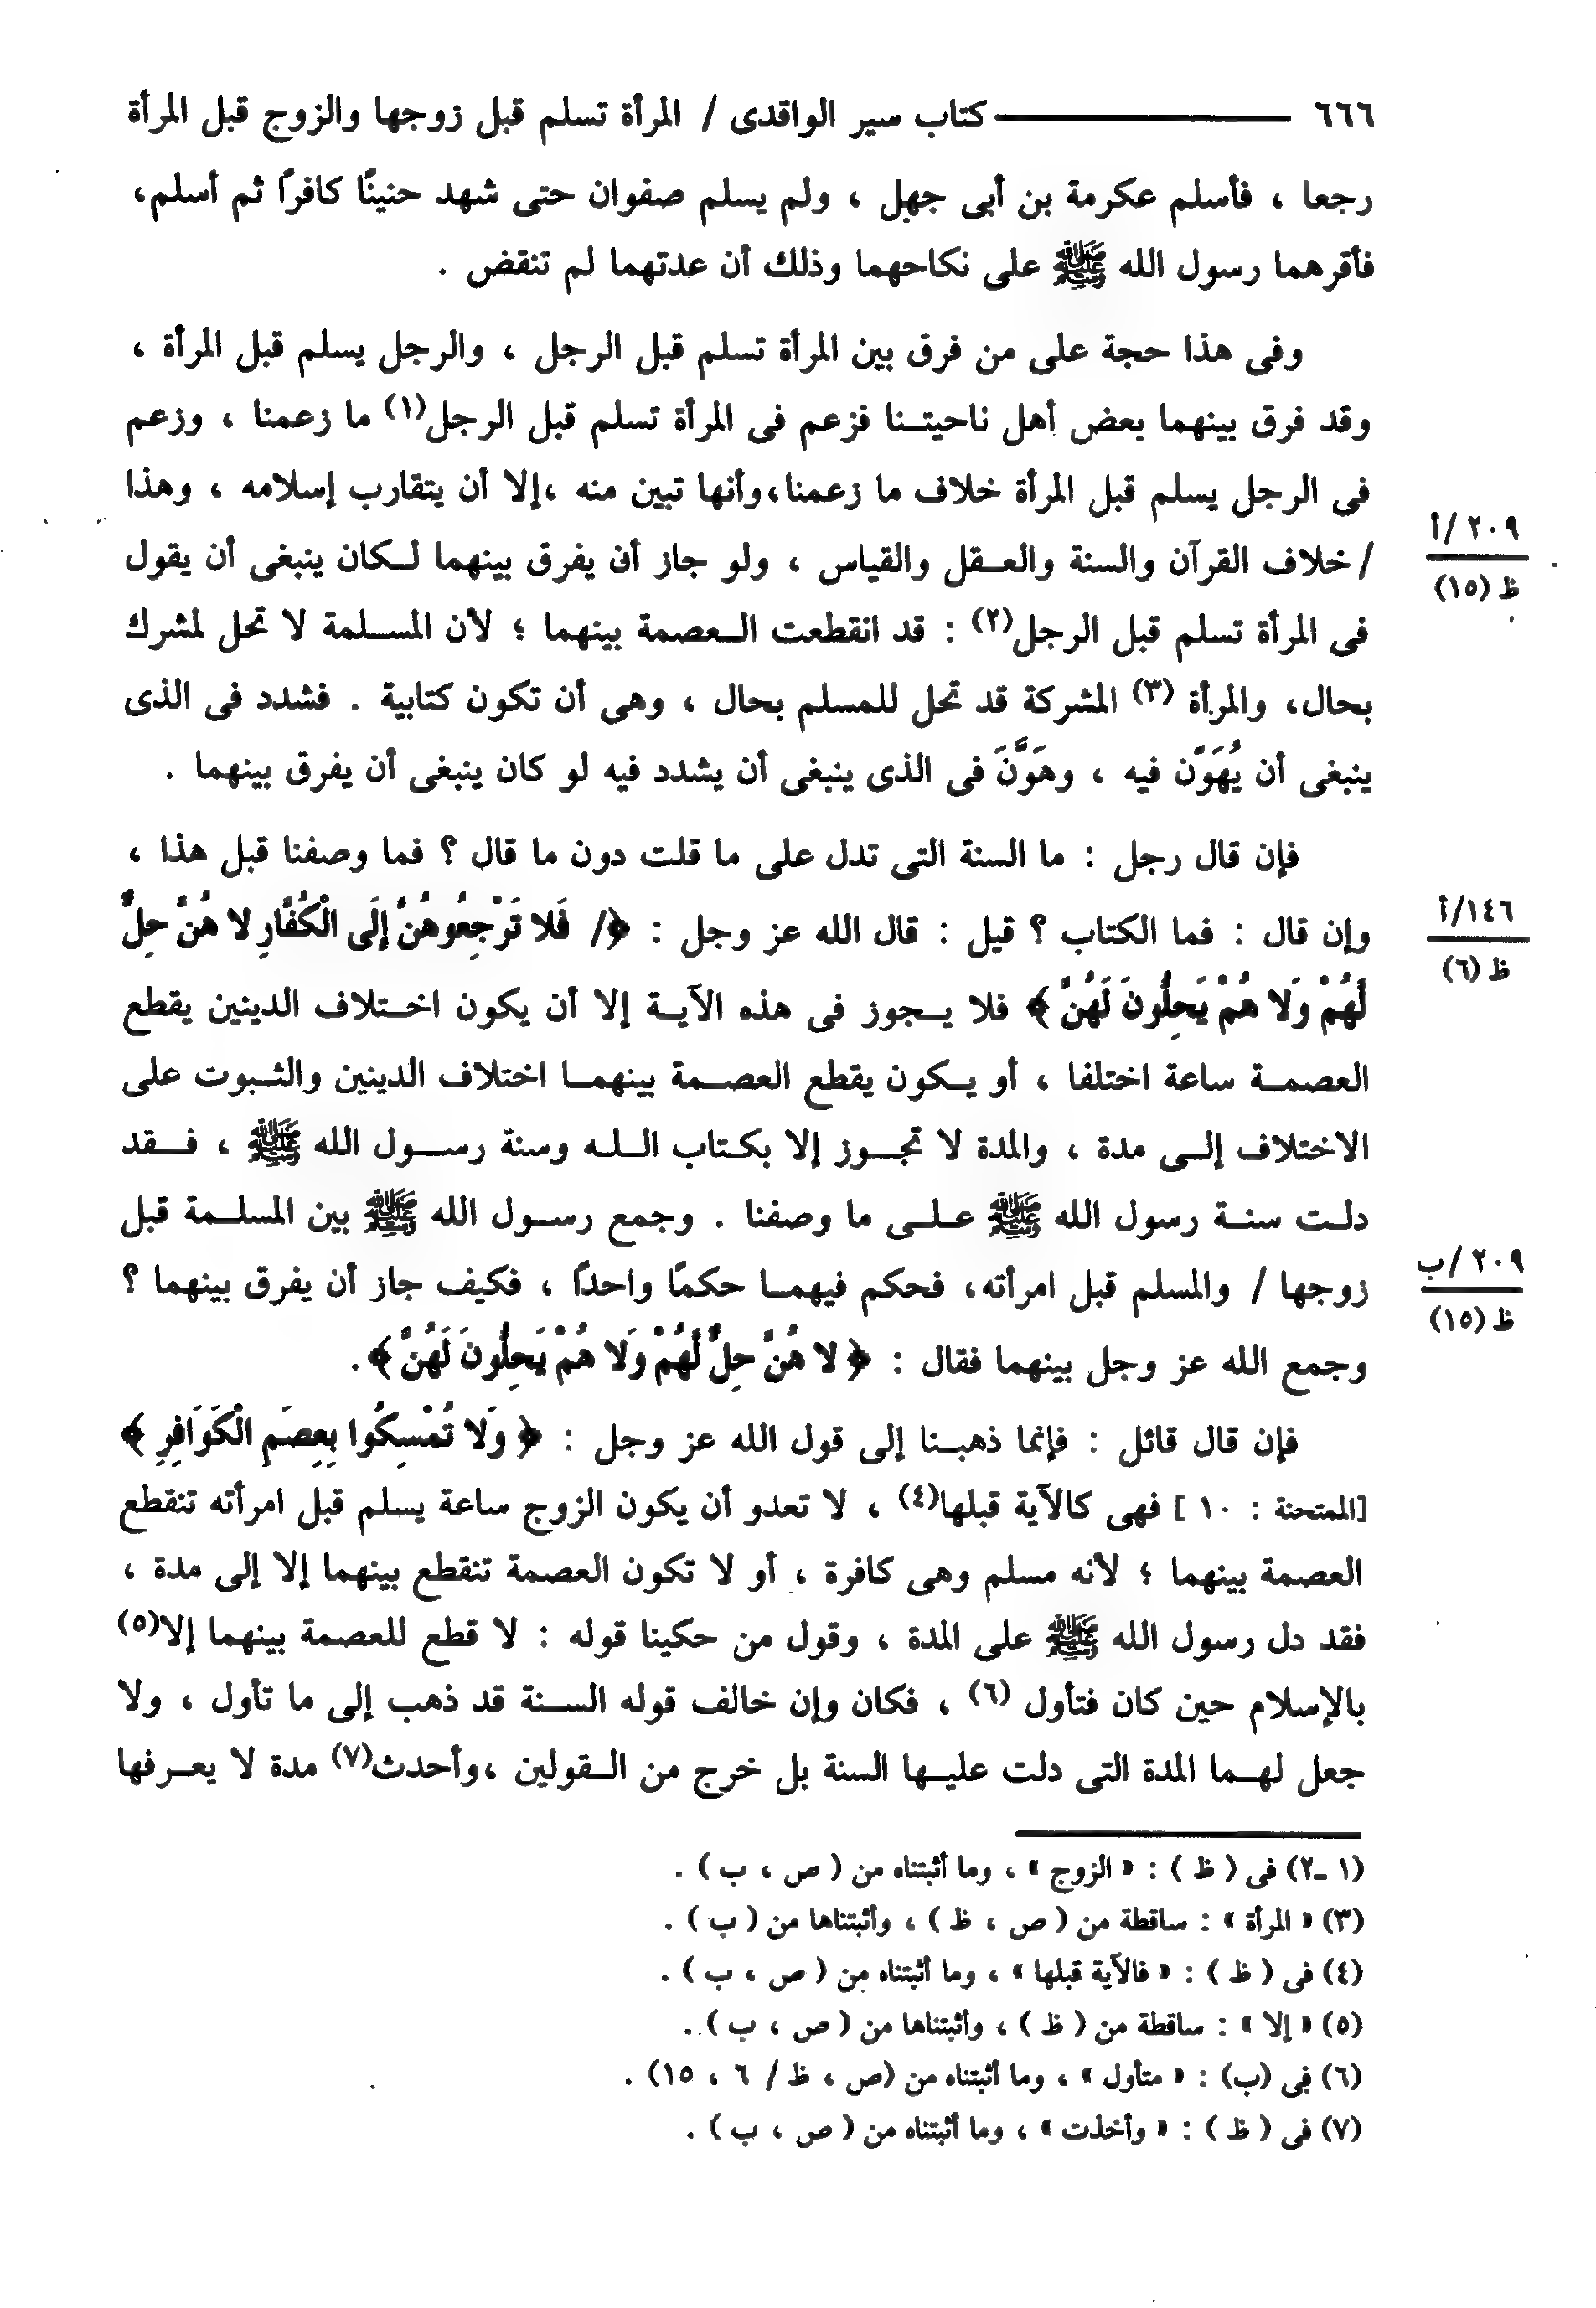 ٦٦٦ كتاب سير الواقدى / المرأة تسلم قبل زوجها والزوج قبل المرأة
رجعا ، فأسلم عكرمة بن أبى جهل ، ولم يسلم صفوان حتى شهد حنينًا كافرًا ثم أسلم،
فأقرهما رسول الله ﷺ على نكاحهما وذلك أن عدتهما لم تنقض .
وفى هذا حجة على من فرق بين المرأة تسلم قبل الرجل ، والرجل يسلم قبل المرأة ،
وقد فرق بينهما بعض أهل ناحيتنا فزعم فى المرأة تسلم قبل الرجل(١) ما زعمنا ، وزعم
فى الرجل يسلم قبل المرأة خلاف ما زعمنا،وأنها تبين منه ،إلا أن يتقارب إسلامه ، وهذا
٢٠٩ /أ
ظ (١٥)
/ خلاف القرآن والسنة والعقل والقياس ، ولو جاز أن يفرق بينهما لكان ينبغى أن يقول
فى المرأة تسلم قبل الرجل(٢) : قد انقطعت العصمة بينهما ؛ لأن المسلمة لا تحل لمشرك
بحال، والمرأة (٣) المشركة قد تحل للمسلم بحال ، وهى أن تكون كتابية . فشدد فى الذى
ينبغى أن يُهَوَّن فيه ، وهَوَّنَ فى الذى ينبغى أن يشدد فيه لو كان ينبغى أن يفرق بينهما .
فإن قال رجل : ما السنة التى تدل على ما قلت دون ما قال ؟ فما وصفنا قبل هذا ،
١٤٦/أ
ظ (٦)
وإن قال : فما الكتاب ؟ قيل : قال الله عز وجل : ﴿/ فَلا تَرْجِعُوهُنَّ إِلَى الْكُفَّارِ لا هُنَّ حِلٌّ
لَّهُمْ وَلا هُمْ يَحِلُّونَ لَهُنَّ ﴾ فلا يجوز فى هذه الآية إلا أن يكون اختلاف الدينين يقطع
العصمة ساعة اختلفا ، أو يكون يقطع العصمة بينهما اختلاف الدينين والثبوت على
الاختلاف إلى مدة ، والمدة لا تجوز إلا بكتاب الله وسنة رسول الله ﷺ ، فقد
دلت سنة رسول الله ﷺ على ما وصفنا . وجمع رسول الله ﷺ بين المسلمة قبل
٢٠٩ /ب
ظ (١٥)
زوجها / والمسلم قبل امرأته، فحكم فيهما حكمًا واحدًا ، فكيف جاز أن يفرق بينهما ؟
وجمع الله عز وجل بينهما فقال : ﴿ لا هُنَّ حِلٌّ لَّهُمْ وَلا هُمْ يَحِلُّونَ لَهُنَّ ﴾ .
فإن قال قائل : فإنما ذهبنا إلى قول الله عز وجل : ﴿ وَلا تُمْسِكُوا بِعِصَمِ الْكَوَافِرِ ﴾
[الممتحنة : ١٠ ] فهى كالآية قبلها(٤) ، لا تعدو أن يكون الزوج ساعة يسلم قبل امرأته تنقطع
العصمة بينهما ؛ لأنه مسلم وهى كافرة ، أو لا تكون العصمة تنقطع بينهما إلا إلى مدة ،
فقد دل رسول الله ﷺ على المدة ، وقول من حكينا قوله : لا قطع للعصمة بينهما إلا(٥)
بالإسلام حين كان فتأول (٦) ، فكان وإن خالف قوله السنة قد ذهب إلى ما تأول ، ولا
جعل لهما المدة التى دلت عليها السنة بل خرج من القولين ،وأحدث(٧) مدة لا يعرفها
(١ ـ٢) فى ( ظ ) : « الزوج » ، وما أثبتناه من ( ص ، ب ) .
(٣) « المرأة » : ساقطة من ( ص ، ظ ) ، وأثبتناها من ( ب ) .
(٤) فى ( ظ ) : « فالآية قبلها » ، وما أثبتناه من ( ص ، ب ) .
(٥) « إلا » : ساقطة من ( ظ ) ، وأثبتناها من ( ص ، ب ) .
(٦) فى (ب) : « متأول » ، وما أثبتناه من (ص ، ظ / ٦ ، ١٥) .
(٧) فى ( ظ ) : « وأخذت » ، وما أثبتناه من ( ص ، ب ) .